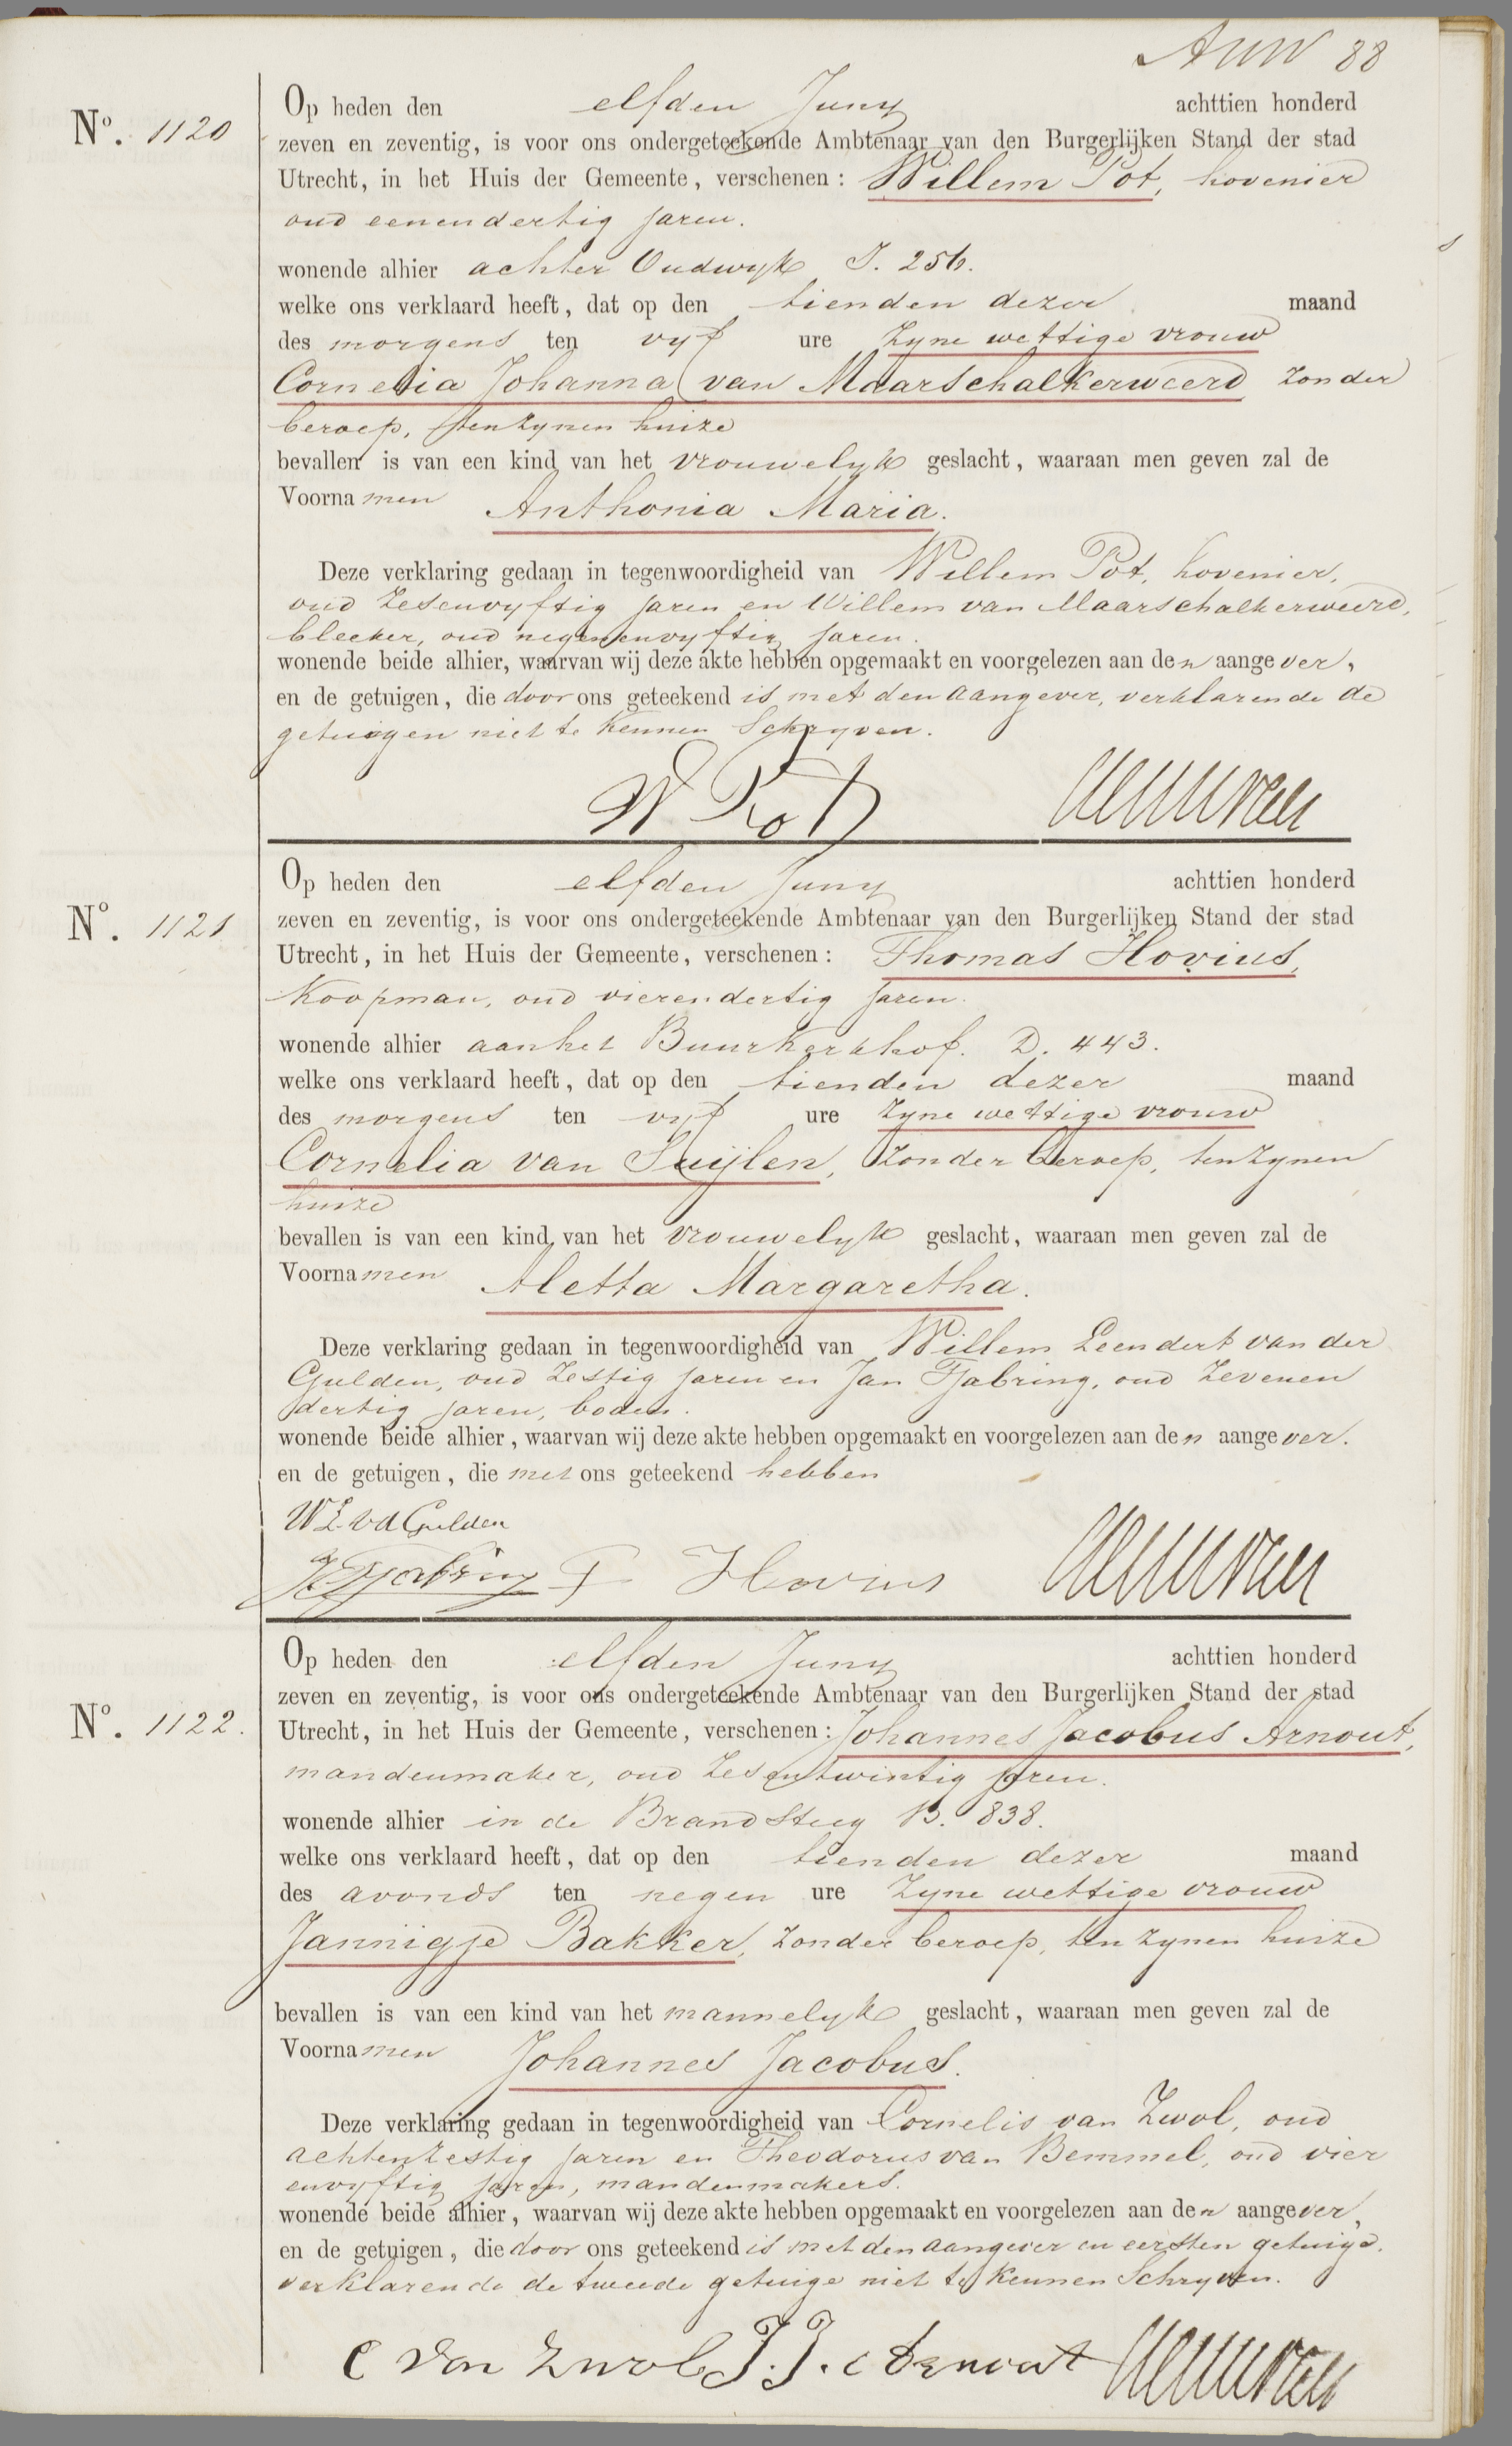 88
Op heden den elfden Juny achttien honderd
N°. 1120
zeven en zeventig, is voor ons ondergeteekende Ambtenaar van den Burgerlijken Stand der stad
Utrecht, in het Huis der Gemeente, verschenen: Willem Pot, hovenier
oud eenendertig jaren.
wonende alhier achter Oudwyk J. 256.
welke ons verklaard heeft, dat op den tienden dezer maand
des morgens ten vyf ure zyne wettige vrouw
Cornelia Johanna van Maarschalkerweerd zonder
beroep, ten zynen huize
bevallen is van een kind van het vrouwelyk geslacht, waaraan men geven zal de
Voornamen Anthonia Maria.
Deze verklaring gedaan in tegenwoordigheid van Willem Pot, hovenier,
oud zesenvyftig jaren en Willem van Maarschalkerweerd,
bleeker, oud negenenvyftig jaren.
wonende beide alhier, waarvan wij deze akte hebben opgemaakt en voorgelezen aan den aangever,
en de getuigen, die door ons geteekend is met den aangever, verklarende de
getuigen niet te kennen Schryven.
W Pot
Op heden den elfden Juny achttien honderd
N°. 1121
zeven en zeventig, is voor ons ondergeteekende Ambtenaar van den Burgerlijken Stand der stad
Utrecht, in het Huis der Gemeente, verschenen: Thomas Hovius,
Koopman, oud vierendertig jaren.
wonende alhier aan het Buurkerkhof. D. 443.
welke ons verklaard heeft, dat op den tienden dezer maand
des morgens ten vyf ure zyne wettige vrouw
Cornelia van Suijlen, zonder beroep, ten zynen
huize
bevallen is van een kind van het vrouwelyk geslacht, waaraan men geven zal de
Voornamen Aletta Margaretha.
Deze verklaring gedaan in tegenwoordigheid van Willem Leendert van der
Gulden, oud zestig jaren en Jan Tjabring, oud zevenen
dertig jaren, boden.
wonende beide alhier, waarvan wij deze akte hebben opgemaakt en voorgelezen aan den aangever.
en de getuigen, die met ons geteekend hebben
W L vd Gulden
J Tjabring T Hovius
Op heden den elfden Juny achttien honderd
zeven en zeventig, is voor ons ondergeteekende Ambtenaar van den Burgerlijken Stand der stad
N°. 1122.
Utrecht, in het Huis der Gemeente, verschenen: Johannes Jacobus Arnout,
mandenmaker, oud zesentwintig jaren.
wonende alhier in de Brandsteeg B. 838.
welke ons verklaard heeft, dat op den tienden dezer maand
des avonds ten negen ure zyne wettige vrouw
Jannigje Bakker, zonder beroep, ten zynen huize
bevallen is van een kind van het mannelyk geslacht, waaraan men geven zal de
Voornamen Johannes Jacobus.
Deze verklaring gedaan in tegenwoordigheid van Cornelis van Zwol, oud
achtenzestig jaren en Theodorus van Bemmel, oud vier
envyftig jaren, mandenmakers.
wonende beide alhier, waarvan wij deze akte hebben opgemaakt en voorgelezen aan den aangever,
en de getuigen, die door ons geteekend is met den aangever en eersten getuige.
verklarende de tweede getuige niet te kennen Schryven.
C van Zwol J. J. Arnout